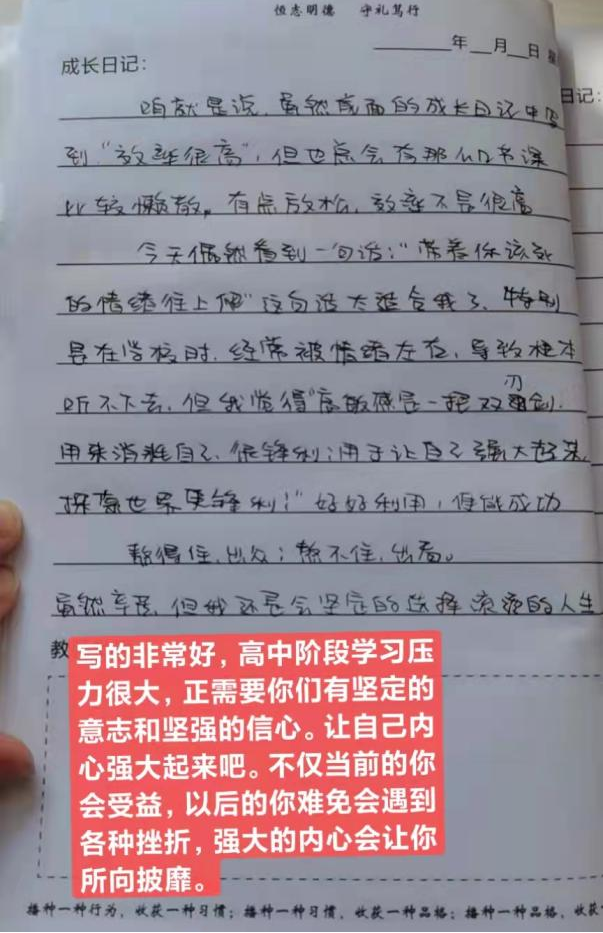 恒志明德 守礼笃行
年 月 日 星
成长日记：
日记：
咱就是说，虽然前面的成长日记中写
到“效率很高”，但也总会有那么几节课
比较懒散，有点放松，效率不是很高
今天偶然看到一句话：“带着你该死
的情绪往上爬”这句话太适合我了，特别
是在学校时，经常被情绪左右，导致根本
听不下去，但我觉得“高敏感是一把双刃剑，
用来消耗自己，很锋利；用于让自己强大起来，
探索世界更锋利！”好好利用，便能成功
熬得住，出众；熬不住，出局。
虽然辛苦，但我还是会坚定的选择滚烫的人生
教
写的非常好，高中阶段学习压
力很大，正需要你们有坚定的
意志和坚强的信心。让自己内
心强大起来吧。不仅当前的你
会受益，以后的你难免会遇到
各种挫折，强大的内心会让你
所向披靡。
播种一种行为，收获一种习惯；播种一种习惯，收获一种品格；播种一种品格，收获一